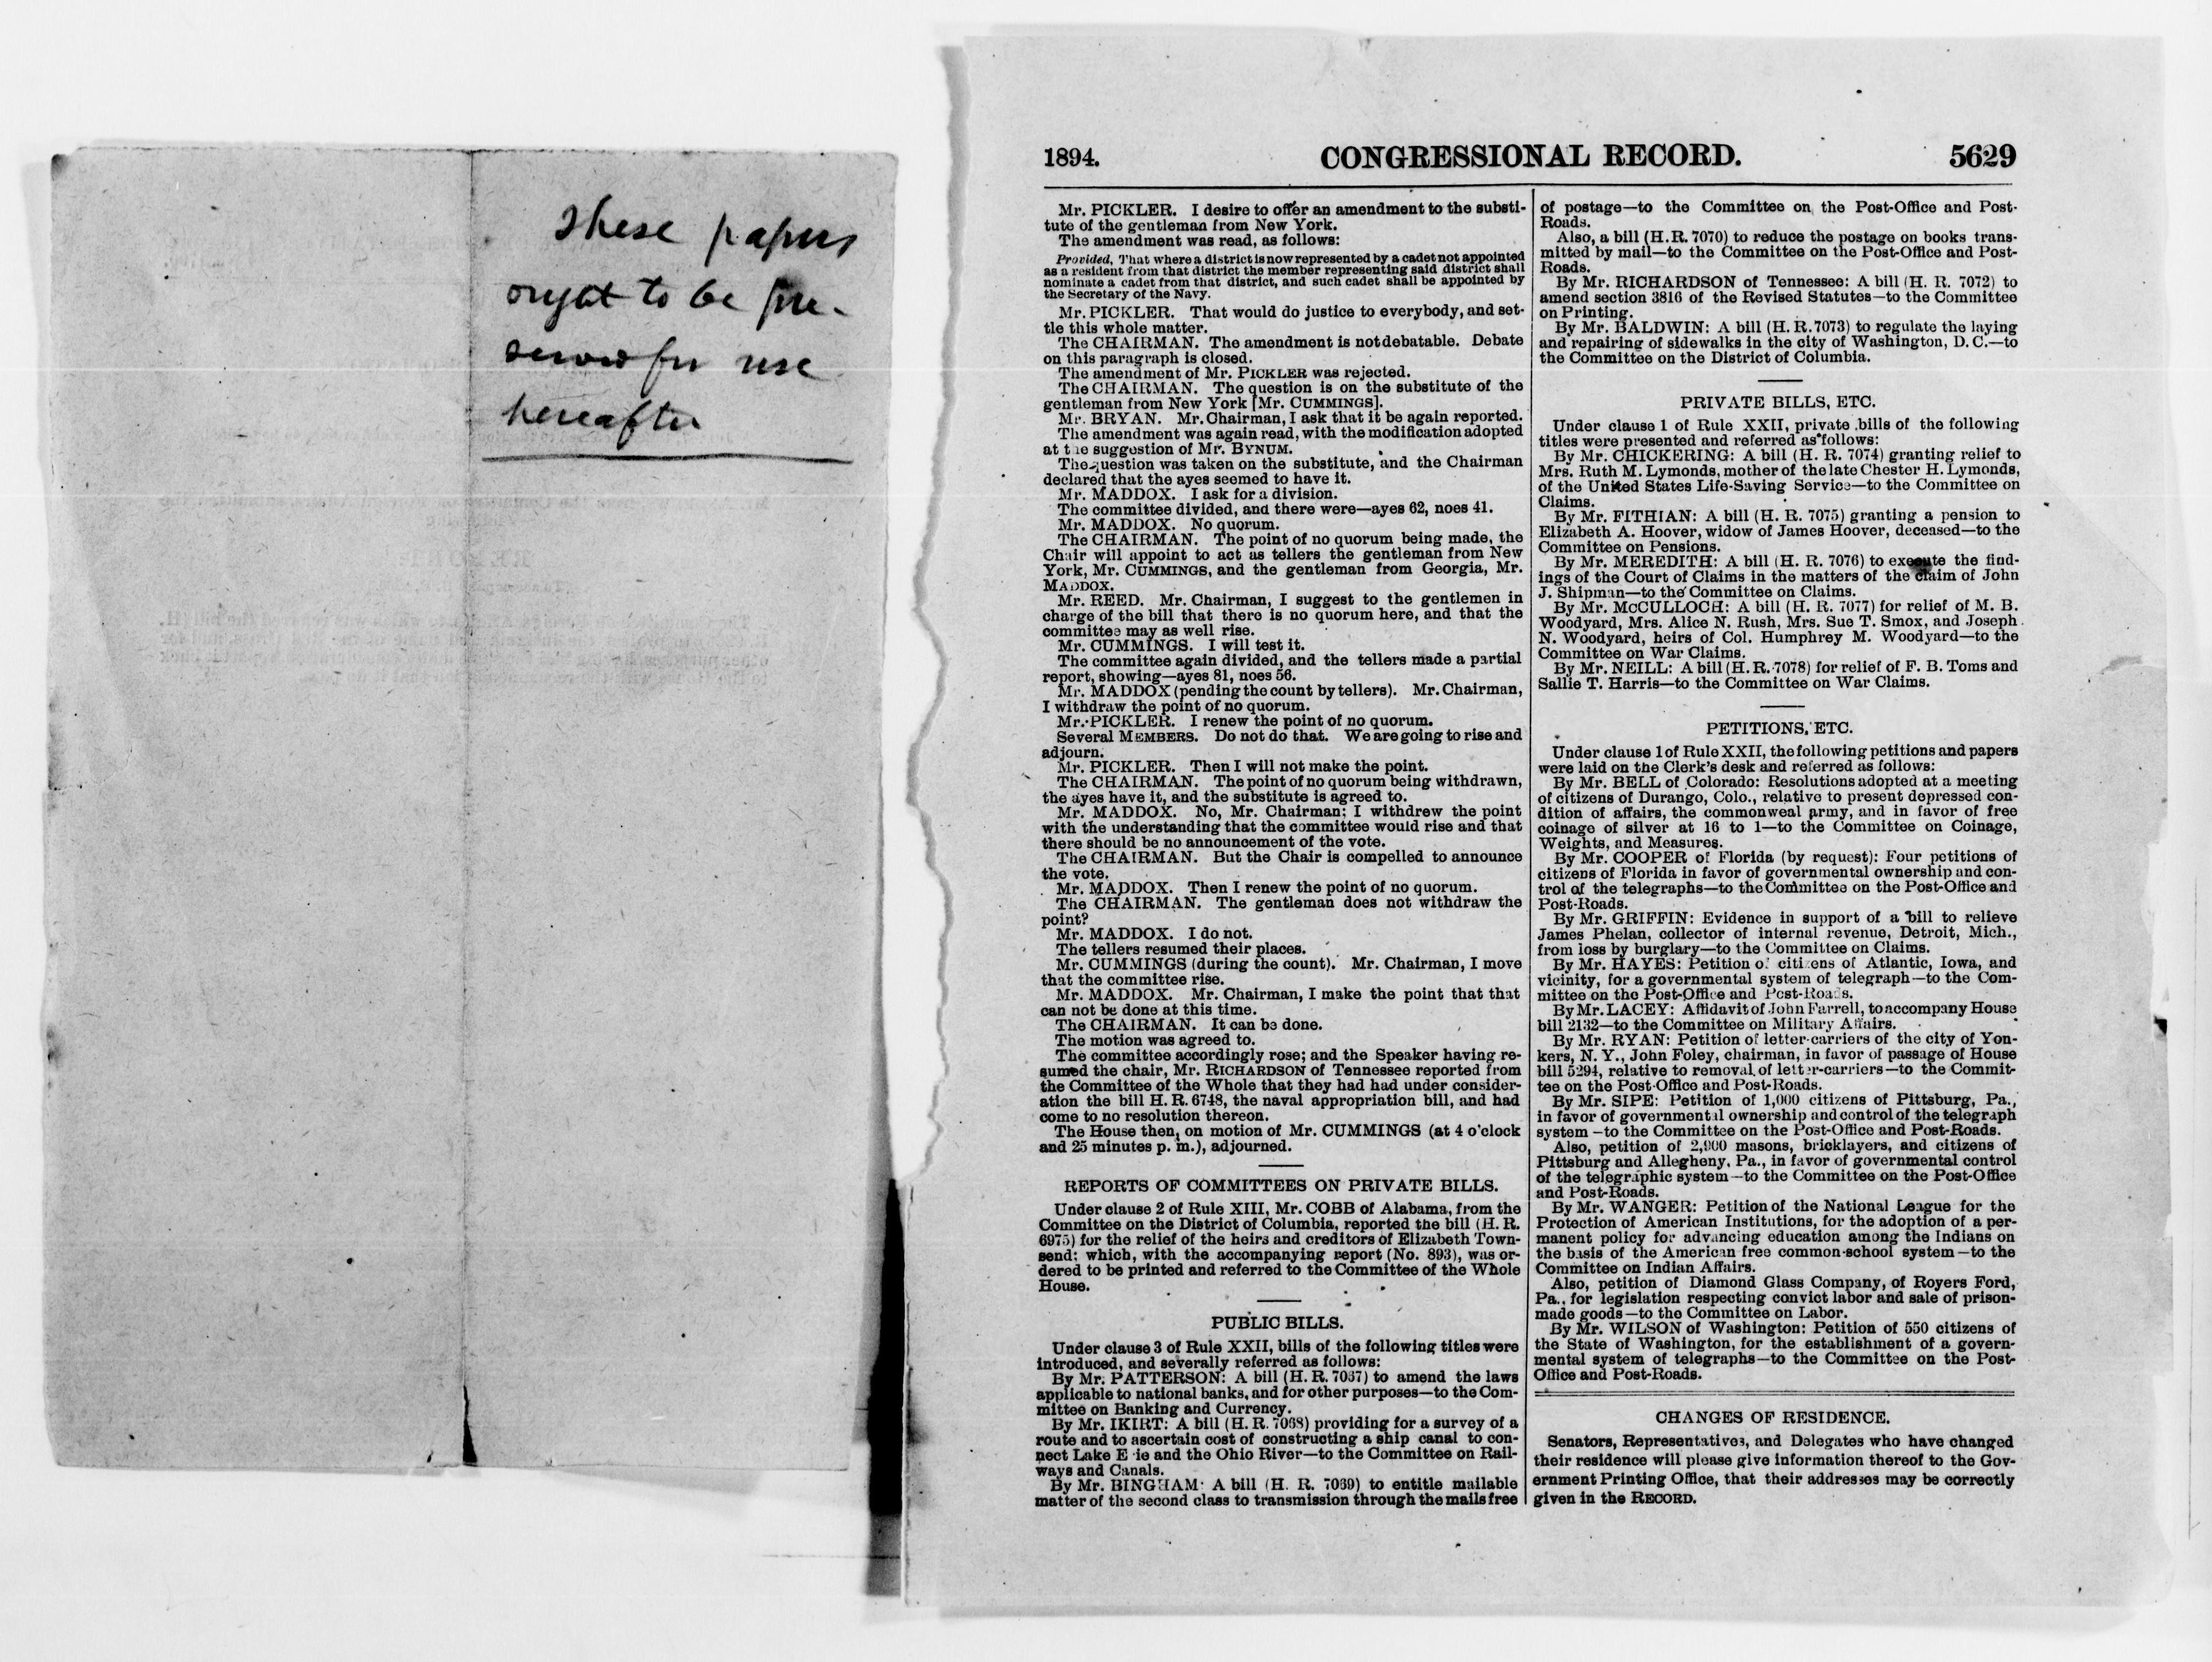 These papers
ought to be pre-
served for use
hereafter
1894. CONGRESSIONAL RECORD. 5629
Mr. PICKLER. I desire to offer an amendment to the substi-
tute of the gentleman from New York.
The amendment was read, as follows:
Provided, That where a district is now represented by a cadet not appointed
as a resident from that district the member representing said district shall
nominate a cadet from that district, and such cadet shall be appointed by
the Secretary of the Navy.
Mr. PICKLER. That would do justice to everybody, and set-
tle this whole matter.
The CHAIRMAN. The amendment is not debatable. Debate
on this paragraph is closed.
The amendment of Mr. PICKLER was rejected.
The CHAIRMAN. The question is on the substitute of the
gentleman from New York [Mr. CUMMINGS].
Mr. BRYAN. Mr. Chairman, I ask that it be again reported.
The amendment was again read, with the modification adopted
at the suggestion of Mr. BYNUM.
The question was taken on the substitute, and the Chairman
declared that the ayes seemed to have it.
Mr. MADDOX. I ask for a division.
The committee divided, and there were—ayes 62, noes 41.
Mr. MADDOX. No quorum.
The CHAIRMAN. The point of no quorum being made, the
Chair will appoint to act as tellers the gentleman from New
York, Mr. CUMMINGS, and the gentleman from Georgia, Mr.
MADDOX.
Mr. REED. Mr. Chairman, I suggest to the gentlemen in
charge of the bill that there is no quorum here, and that the
committee may as well rise.
Mr. CUMMINGS. I will test it.
The committee again divided, and the tellers made a partial
report, showing—ayes 81, noes 56.
Mr. MADDOX (pending the count by tellers). Mr. Chairman,
I withdraw the point of no quorum.
Mr. PICKLER. I renew the point of no quorum.
Several MEMBERS. Do not do that. We are going to rise and
adjourn.
Mr. PICKLER. Then I will not make the point.
The CHAIRMAN. The point of no quorum being withdrawn,
the ayes have it, and the substitute is agreed to.
Mr. MADDOX. No, Mr. Chairman; I withdrew the point
with the understanding that the committee would rise and that
there should be no announcement of the vote.
The CHAIRMAN. But the Chair is compelled to announce
the vote.
Mr. MADDOX. Then I renew the point of no quorum.
The CHAIRMAN. The gentleman does not withdraw the
point?
Mr. MADDOX. I do not.
The tellers resumed their places.
Mr. CUMMINGS (during the count). Mr. Chairman, I move
that the committee rise.
Mr. MADDOX. Mr. Chairman, I make the point that that
can not be done at this time.
The CHAIRMAN. It can be done.
The motion was agreed to.
The committee accordingly rose; and the Speaker having re-
sumed the chair, Mr. RICHARDSON of Tennessee reported from
the Committee of the Whole that they had had under consider-
ation the bill H. R. 6748, the naval appropriation bill, and had
come to no resolution thereon.
The House then, on motion of Mr. CUMMINGS (at 4 o'clock
and 25 minutes p. m.), adjourned.
REPORTS OF COMMITTEES ON PRIVATE BILLS.
Under clause 2 of Rule XIII, Mr. COBB of Alabama, from the
Committee on the District of Columbia, reported the bill (H. R.
6975) for the relief of the heirs and creditors of Elizabeth Town-
send; which, with the accompanying report (No. 893), was or-
dered to be printed and referred to the Committee of the Whole
House.
PUBLIC BILLS.
Under clause 3 of Rule XXII, bills of the following titles were
introduced, and severally referred as follows:
By Mr. PATTERSON: A bill (H. R. 7067) to amend the laws
applicable to national banks, and for other purposes—to the Com-
mittee on Banking and Currency.
By Mr. IKIRT: A bill (H. R. 7068) providing for a survey of a
route and to ascertain cost of constructing a ship canal to con-
nect Lake E ie and the Ohio River—to the Committee on Rail-
ways and Canals.
By Mr. BINGHAM: A bill (H. R. 7069) to entitle mailable
matter of the second class to transmission through the mails free
of postage—to the Committee on the Post-Office and Post-
Roads.
Also, a bill (H. R. 7070) to reduce the postage on books trans-
mitted by mail—to the Committee on the Post-Office and Post-
Roads.
By Mr. RICHARDSON of Tennessee: A bill (H. R. 7072) to
amend section 3816 of the Revised Statutes—to the Committee
on Printing.
By Mr. BALDWIN: A bill (H. R. 7073) to regulate the laying
and repairing of sidewalks in the city of Washington, D. C.—to
the Committee on the District of Columbia.
PRIVATE BILLS, ETC.
Under clause 1 of Rule XXII, private bills of the following
titles were presented and referred as follows:
By Mr. CHICKERING: A bill (H. R. 7074) granting relief to
Mrs. Ruth M. Lymonds, mother of the late Chester H. Lymonds,
of the United States Life-Saving Service—to the Committee on
Claims.
By Mr. FITHIAN: A bill (H. R. 7075) granting a pension to
Elizabeth A. Hoover, widow of James Hoover, deceased—to the
Committee on Pensions.
By Mr. MEREDITH: A bill (H. R. 7076) to execute the find-
ings of the Court of Claims in the matters of the claim of John
J. Shipman—to the Committee on Claims.
By Mr. McCULLOCH: A bill (H. R. 7077) for relief of M. B.
Woodyard, Mrs. Alice N. Rush, Mrs. Sue T. Smox, and Joseph
N. Woodyard, heirs of Col. Humphrey M. Woodyard—to the
Committee on War Claims.
By Mr. NEILL: A bill (H. R. 7078) for relief of F. B. Toms and
Sallie T. Harris—to the Committee on War Claims.
PETITIONS, ETC.
Under clause 1 of Rule XXII, the following petitions and papers
were laid on the Clerk's desk and referred as follows:
By Mr. BELL of Colorado: Resolutions adopted at a meeting
of citizens of Durango, Colo., relative to present depressed con-
dition of affairs, the commonweal army, and in favor of free
coinage of silver at 16 to 1—to the Committee on Coinage,
Weights, and Measures.
By Mr. COOPER of Florida (by request): Four petitions of
citizens of Florida in favor of governmental ownership and con-
trol of the telegraphs—to the Committee on the Post-Office and
Post-Roads.
By Mr. GRIFFIN: Evidence in support of a bill to relieve
James Phelan, collector of internal revenue, Detroit, Mich.,
from loss by burglary—to the Committee on Claims.
By Mr. HAYES: Petition of citizens of Atlantic, Iowa, and
vicinity, for a governmental system of telegraph—to the Com-
mittee on the Post-Office and Post-Roads.
By Mr. LACEY: Affidavit of John Farrell, to accompany House
bill 2132—to the Committee on Military Affairs.
By Mr. RYAN: Petition of letter-carriers of the city of Yon-
kers, N. Y., John Foley, chairman, in favor of passage of House
bill 5294, relative to removal of letter-carriers—to the Commit-
tee on the Post-Office and Post-Roads.
By Mr. SIPE: Petition of 1,000 citizens of Pittsburg, Pa.,
in favor of governmental ownership and control of the telegraph
system—to the Committee on the Post-Office and Post-Roads.
Also, petition of 2,000 masons, bricklayers, and citizens of
Pittsburg and Allegheny, Pa., in favor of governmental control
of the telegraphic system—to the Committee on the Post-Office
and Post-Roads.
By Mr. WANGER: Petition of the National League for the
Protection of American Institutions, for the adoption of a per-
manent policy for advancing education among the Indians on
the basis of the American free common-school system—to the
Committee on Indian Affairs.
Also, petition of Diamond Glass Company, of Royers Ford,
Pa., for legislation respecting convict labor and sale of prison-
made goods—to the Committee on Labor.
By Mr. WILSON of Washington: Petition of 550 citizens of
the State of Washington, for the establishment of a govern-
mental system of telegraphs—to the Committee on the Post-
Office and Post-Roads.
CHANGES OF RESIDENCE.
Senators, Representatives, and Delegates who have changed
their residence will please give information thereof to the Gov-
ernment Printing Office, that their addresses may be correctly
given in the RECORD.